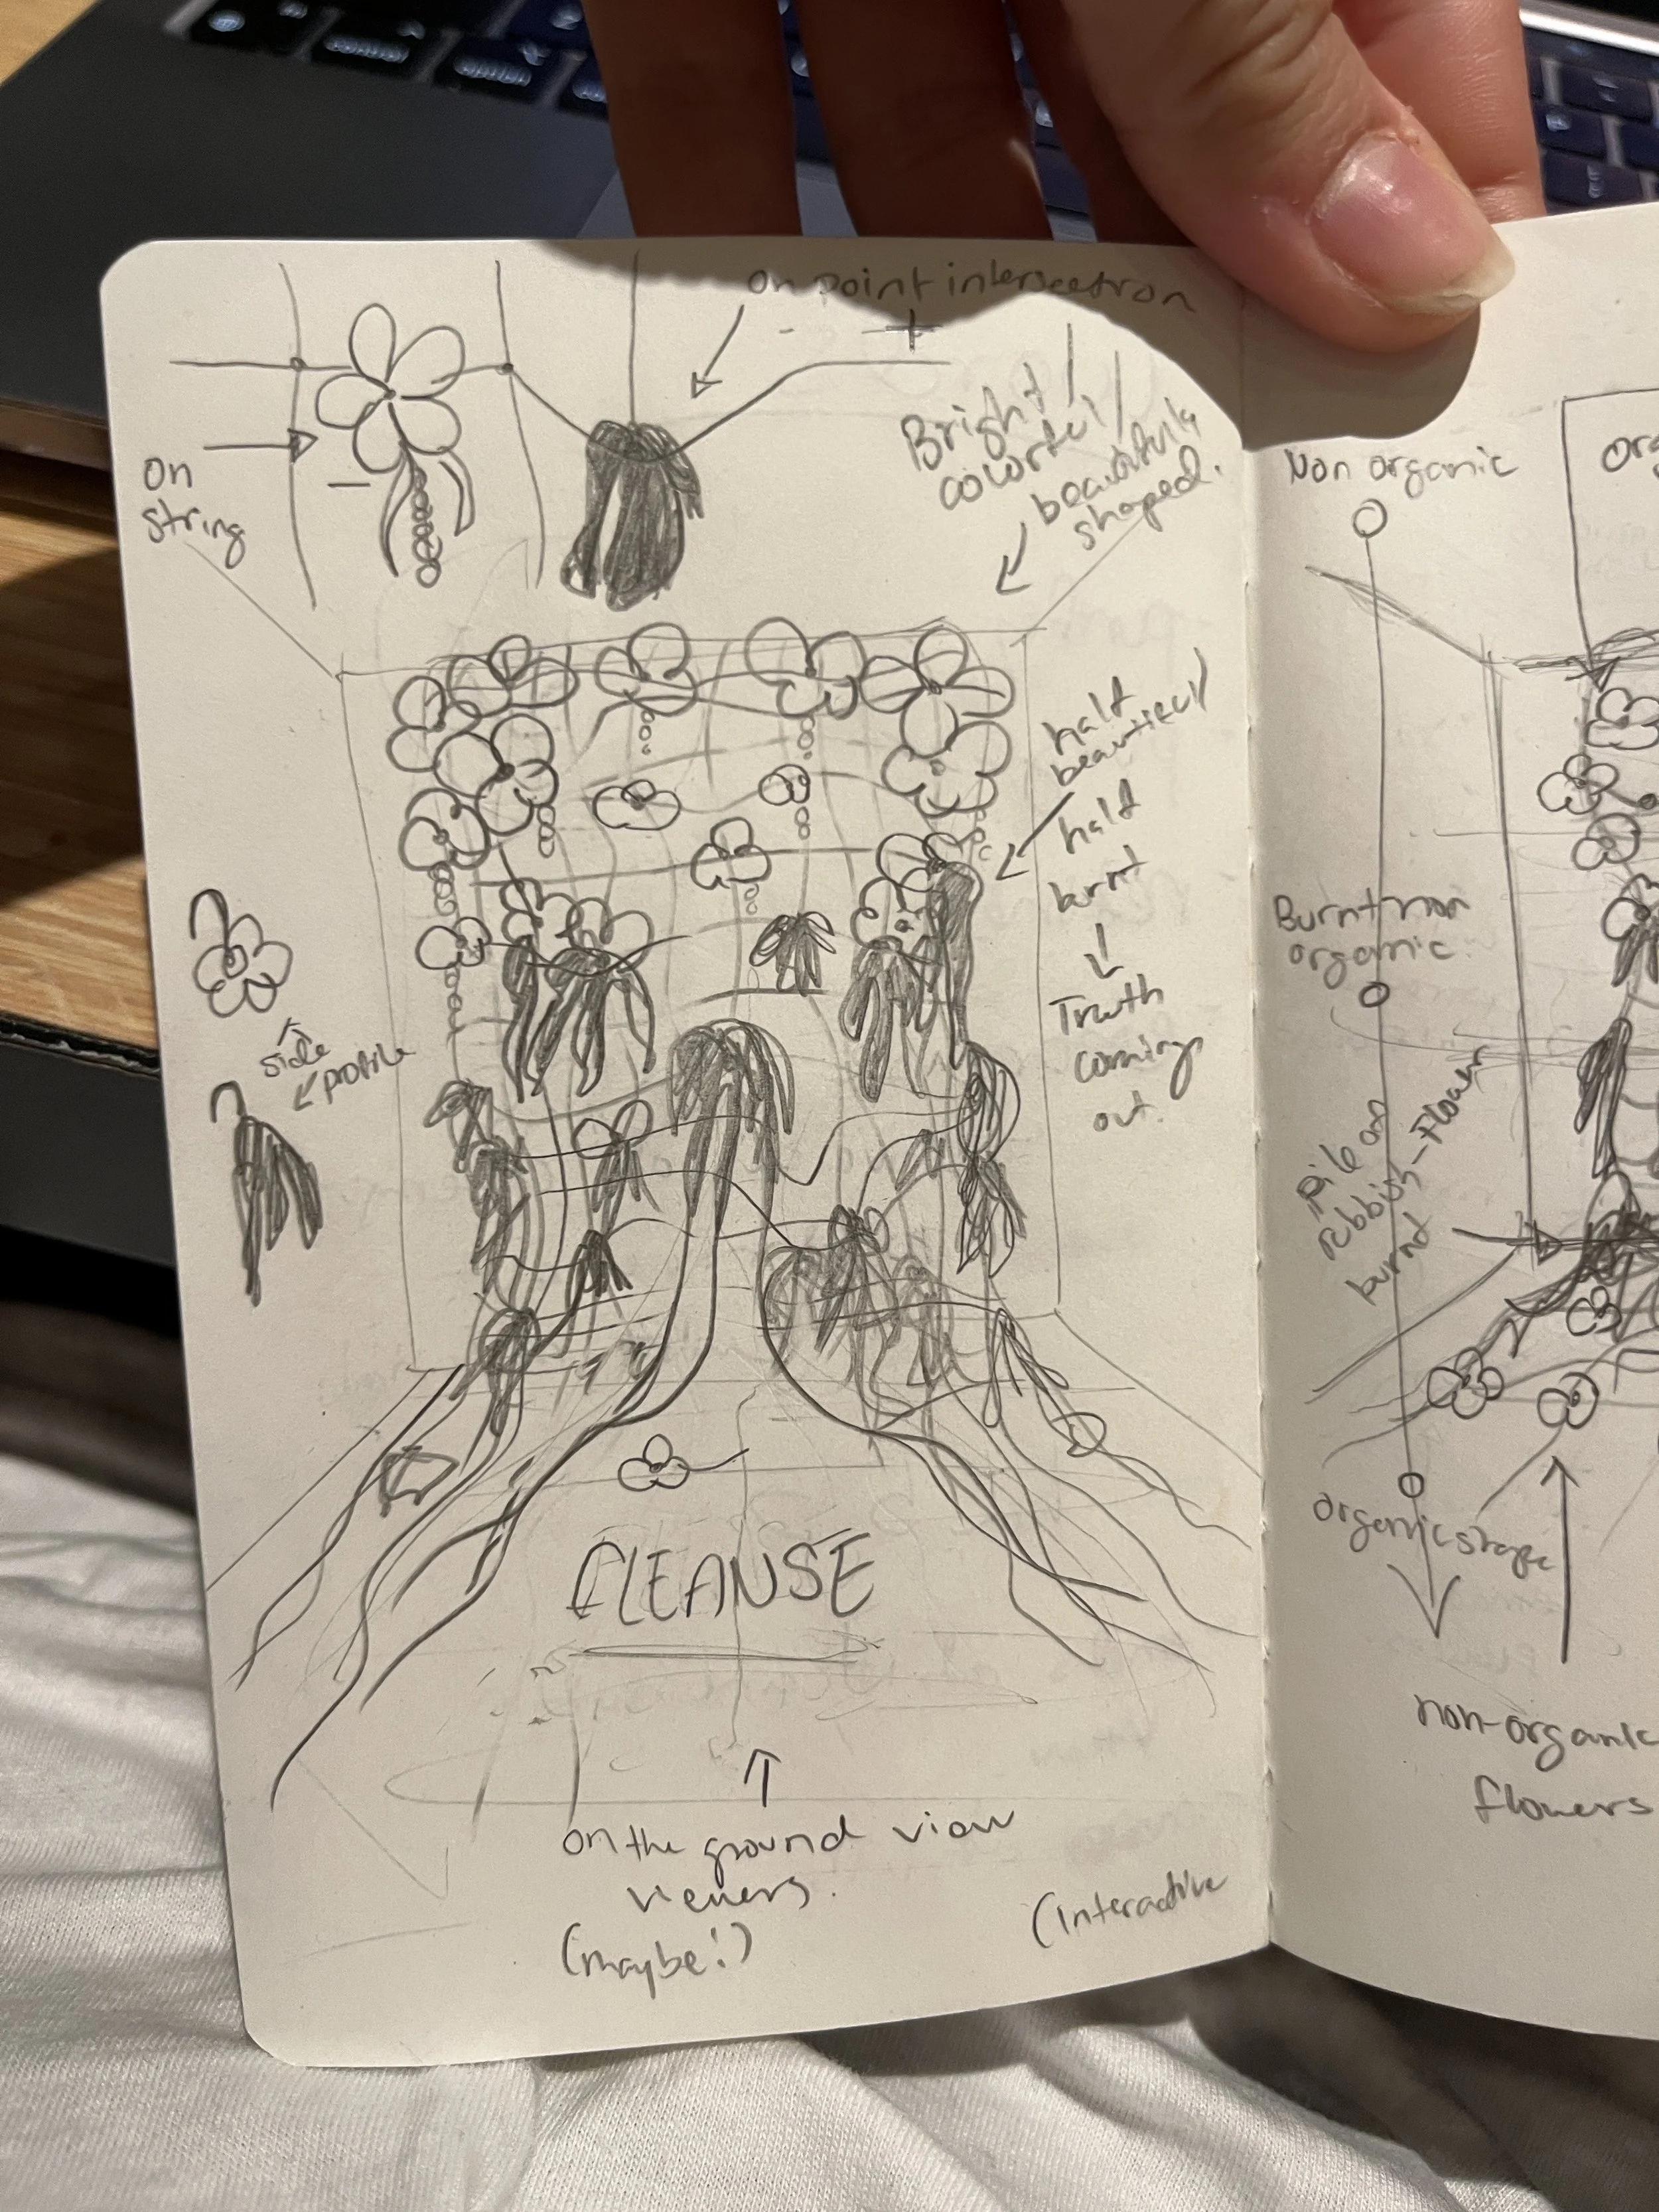 control
option
On point intersection
- +
Bright /
colorful /
beautifula
shaped.
On
string
half
beautiful /
half
burnt
Truth
coming
out.
side
profile
CLEANSE
on the ground view
viewers.
(maybe!)
(Interactive
Non organic
org
Burnt non
organic.
Pile on
rubbish-Flower
burnt
organic shape
non-organic
flowers